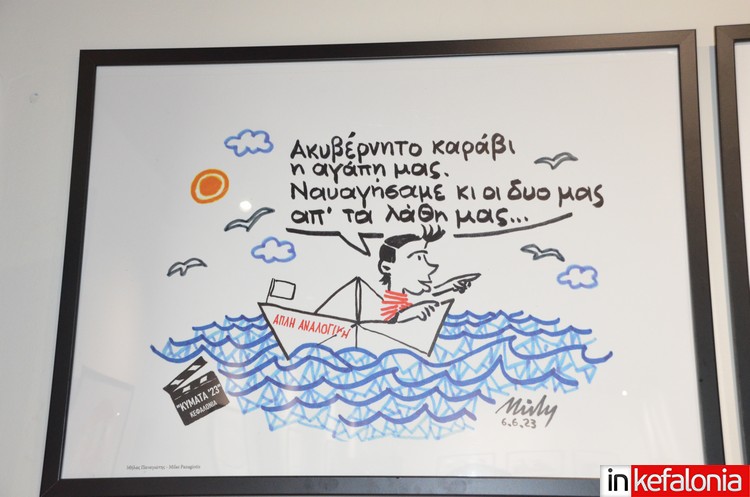 Ακυβέρνητο καράβι
η αγάπη μας.
Ναυαγήσαμε κι οι δυο μας
απ' τα λάθη μας...
ΑΠΛΗ ΑΝΑΛΟΓΙΚΗ
"ΚΥΜΑΤΑ '23"
ΚΕΦΑΛΟΝΙΑ
6.6.23
inkefalonia